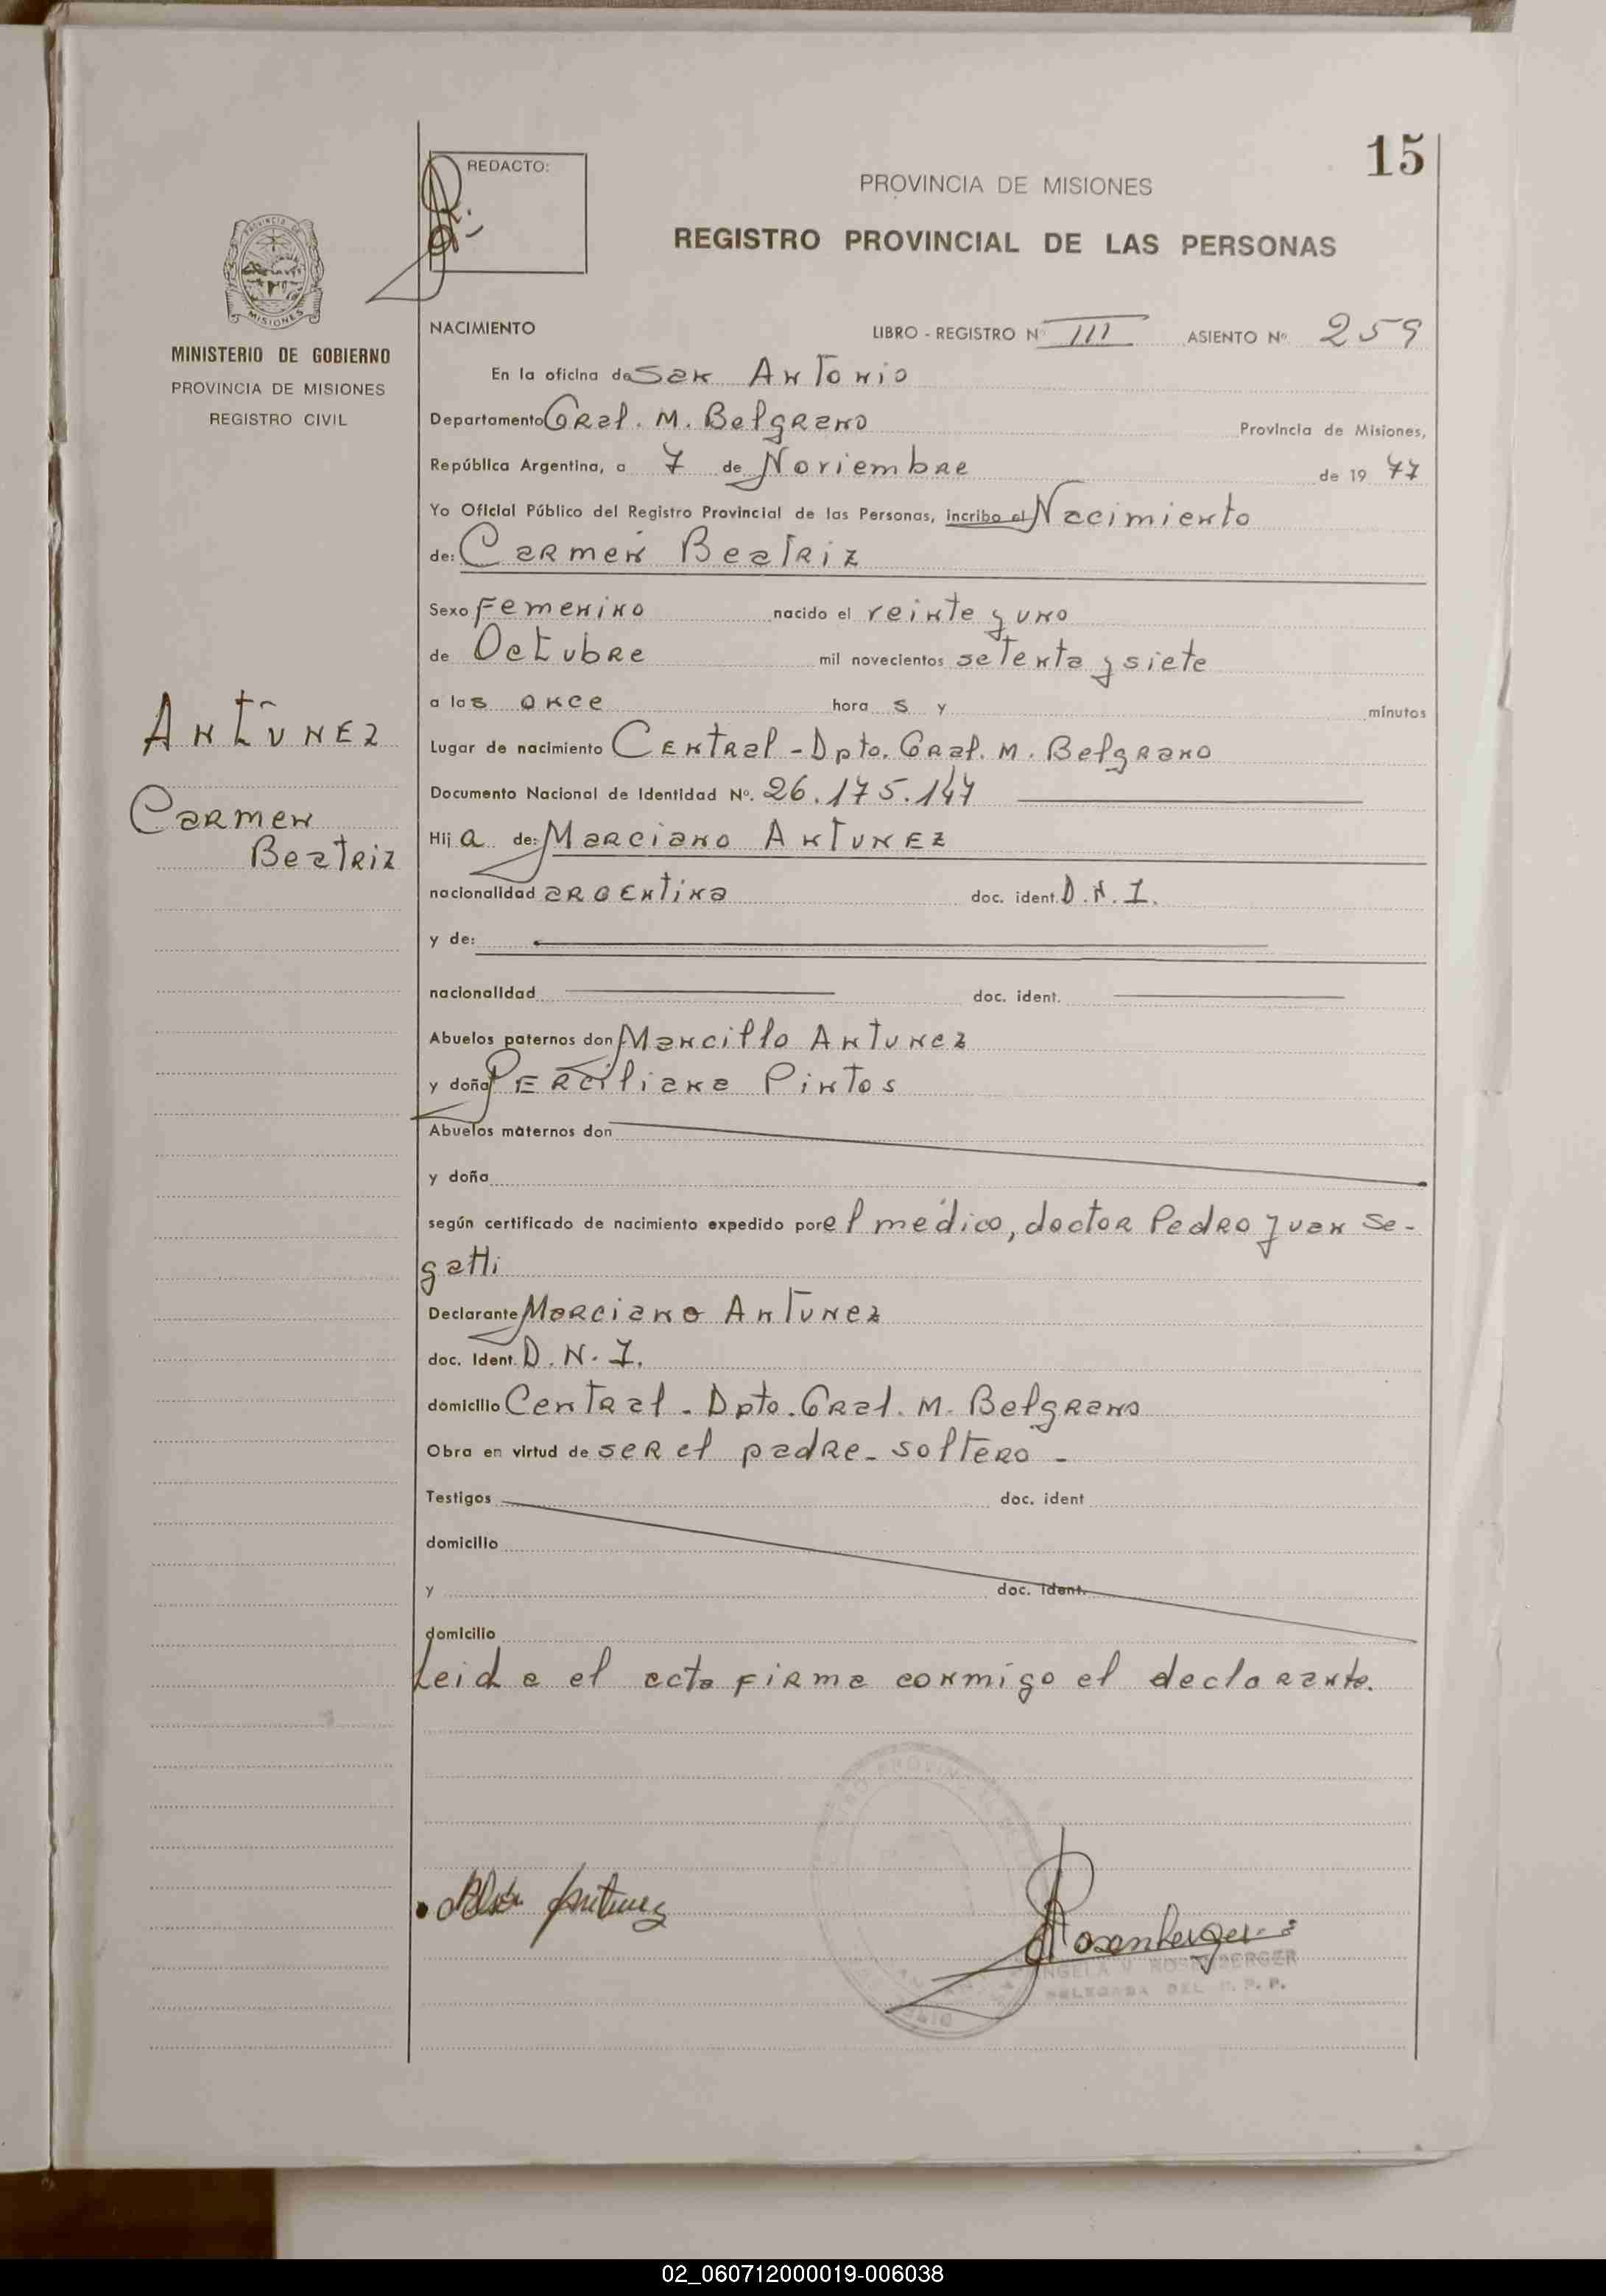 15
REDACTO:
PROVINCIA DE MISIONES
REGISTRO PROVINCIAL DE LAS PERSONAS
MINISTERIO DE GOBIERNO
PROVINCIA DE MISIONES
REGISTRO CIVIL
NACIMIENTO LIBRO - REGISTRO Nº III ASIENTO Nº. 259
En la oficina de San Antonio
Departamento Gral. M. Belgrano Provincia de Misiones,
República Argentina, a 7 de Noviembre de 19 77
Yo Oficial Público del Registro Provincial de las Personas, incribo el Nacimiento
de: Carmen Beatriz
Sexo Femenino nacido el veinte y uno
de Octubre mil novecientos setenta y siete
a las once hora s y minutos
Antúnez
Carmen
Beatriz
Lugar de nacimiento Central - Dpto. Gral. M. Belgrano
Documento Nacional de Identidad Nº. 26.175.147
Hij a de: Marciano Antunez
nacionalidad argentina doc. ident. D.N.I.
y de:
nacionalidad doc. ident.
Abuelos paternos don Mancillo Antunez
y doña Perciliana Pintos
Abuelos maternos don
y doña
según certificado de nacimiento expedido por el médico, doctor Pedro Juan Se-
gatti
Declarante Marciano Antunez
doc. Ident. D.N.I.
domicilio Central - Dpto. Gral. M. Belgrano
Obra en virtud de ser el padre - soltero -
Testigos doc. ident
domicilio
y doc. ident.
domicilio
Leid a el acta firma conmigo el declarante.
Antunez
Rosenberger
ANGELA V. ROSENBERGER
DELEGADA DEL R. P. P.
02_060712000019-006038